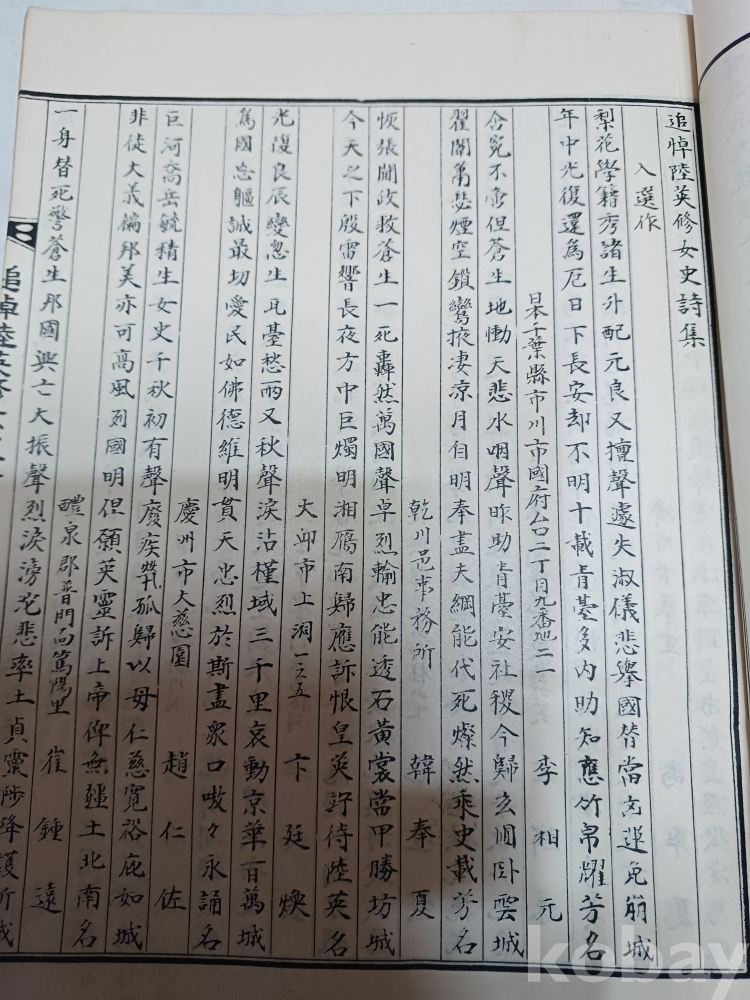 追悼陸英修女史詩集
入選作
梨花學籍秀諸生升配元良又擅聲遽失淑儀悲舉國替當 運免崩城
年中光復還為厄日下長安却不明十載青臺多內助知應竹帛耀芳名
日本千葉縣市川市國府台二丁目九番地二一 李相元
含 不 但蒼生地慟天悲水咽聲昨助青臺安社稷今歸玄 臥雲城
翟閣 煙空鎖鸞掖凄凉月自明奉盡夫綱能代死燦然乘史載芳名
乾川邑事務所 韓奉夏
恢張閫政救蒼生一死轟然萬國聲卓烈輸忠能透石黃裳當甲勝坊城
今天之下殷雷響長夜方中巨燭明湘 南歸應訴恨皇英 待陸英名
大邱市上洞一六五 卞廷煥
光復良辰變忽生 臺愁雨又秋聲淚沾槿域三千里哀動京華百萬城
為國忘軀誠最切愛民如佛德維明貫天忠烈於斯盡衆口嗷々永誦名
慶州市大慈園 趙仁佐
巨河喬岳毓精生女史千秋初有聲廢疾煢孤歸以母仁慈寬裕庇如城
非徒大義徧邦美亦可高風列國明但願英靈訴上帝俾無疆土北南名
醴泉郡普門面篤 里 崔鍾遠
一身替死警蒼生邦國興亡大振聲烈淚滂 悲率土貞靈陟降護 城
追悼陸英
kobay